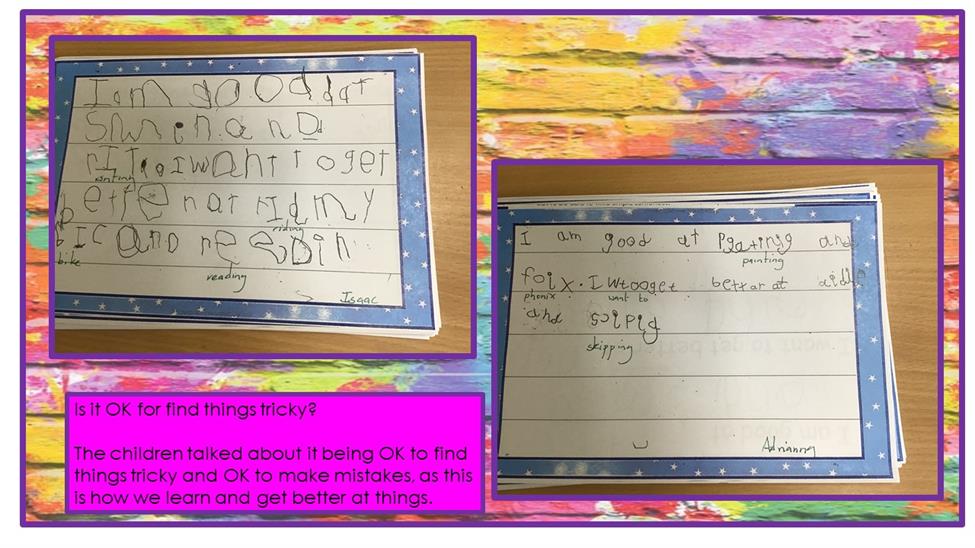 I am good at
Swrien and
rIt I want to get
bette r at rIdmy
writing
bIc and re
riding
bike
reading
Isaac
I am good at pgating and
painting
foix. I wtooget bettar at
phonix want to
and scipig
skipping
Adrianna
Is it OK for find things tricky?
The children talked about it being OK to find
things tricky and OK to make mistakes, as this
is how we learn and get better at things.